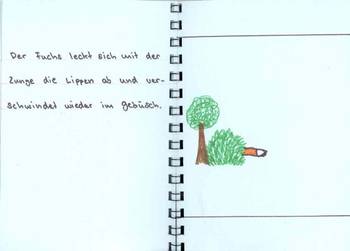 Der Fuchs leckt sich mit der
Zunge die Lippen ab und ver-
schwindet wieder im Gebüsch.